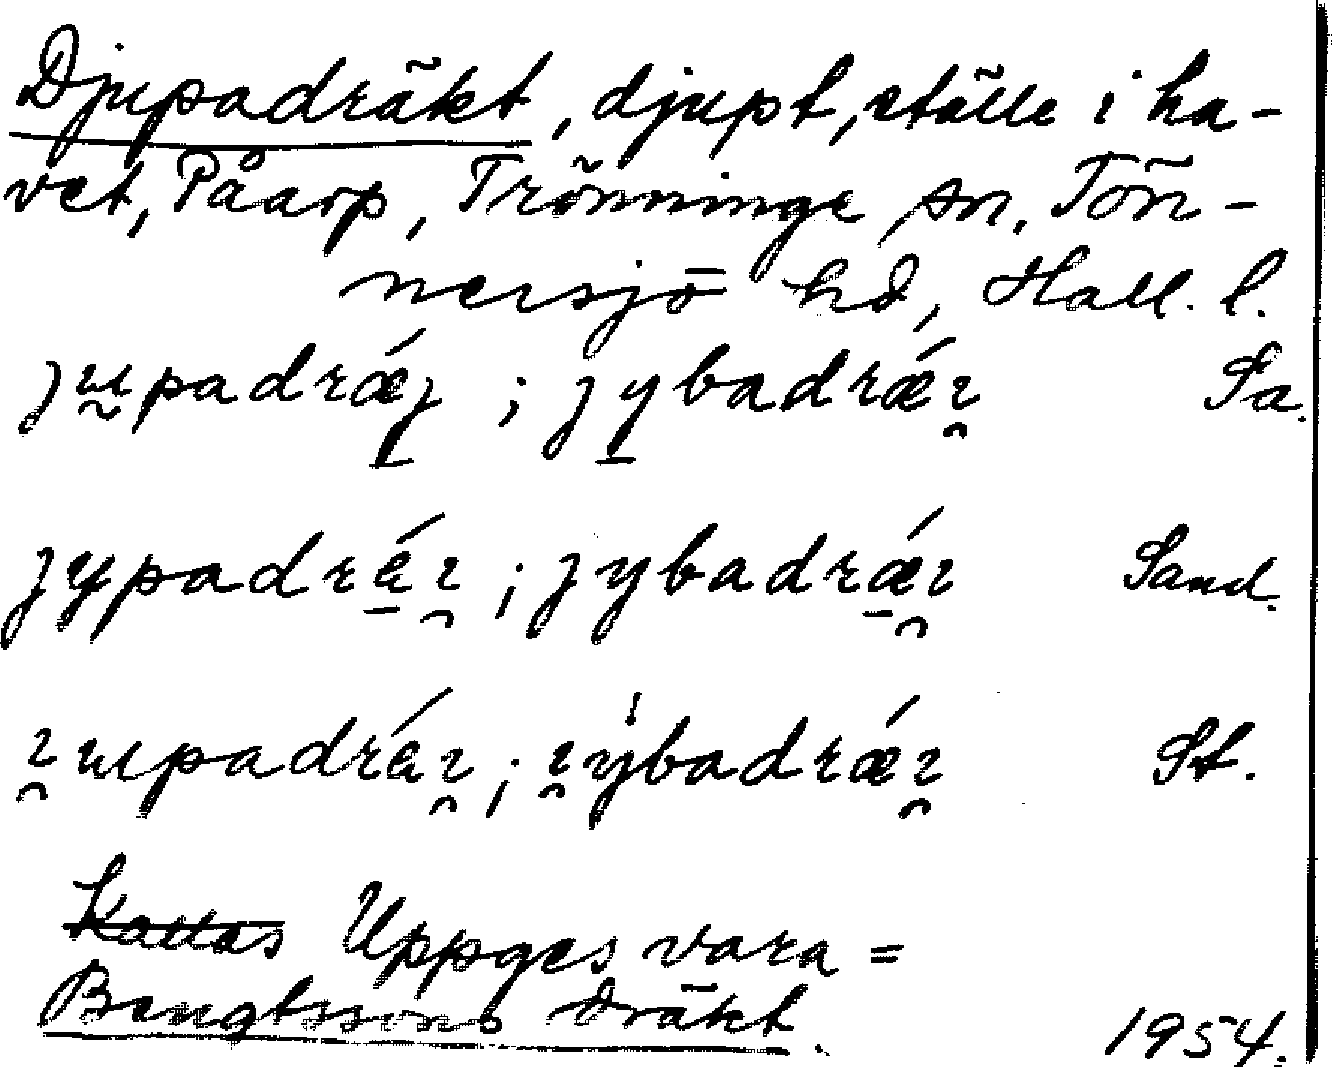 Djupadräkt, djupt, ställe i ha-
vet, Påarp, Trönninge sn, Tön-
nersjö hd, Hall. l.
ȷɯpadrǽȷ ; ȷybadrǽɿ Sa.
ȷypadrǽɿ ; ȷybadrǽɿ Sand.
ɿɯpadrǽɿ ; ɿýbadrǽɿ St.
Kallas Uppges vara =
Bengtssons dräkt. 1954.